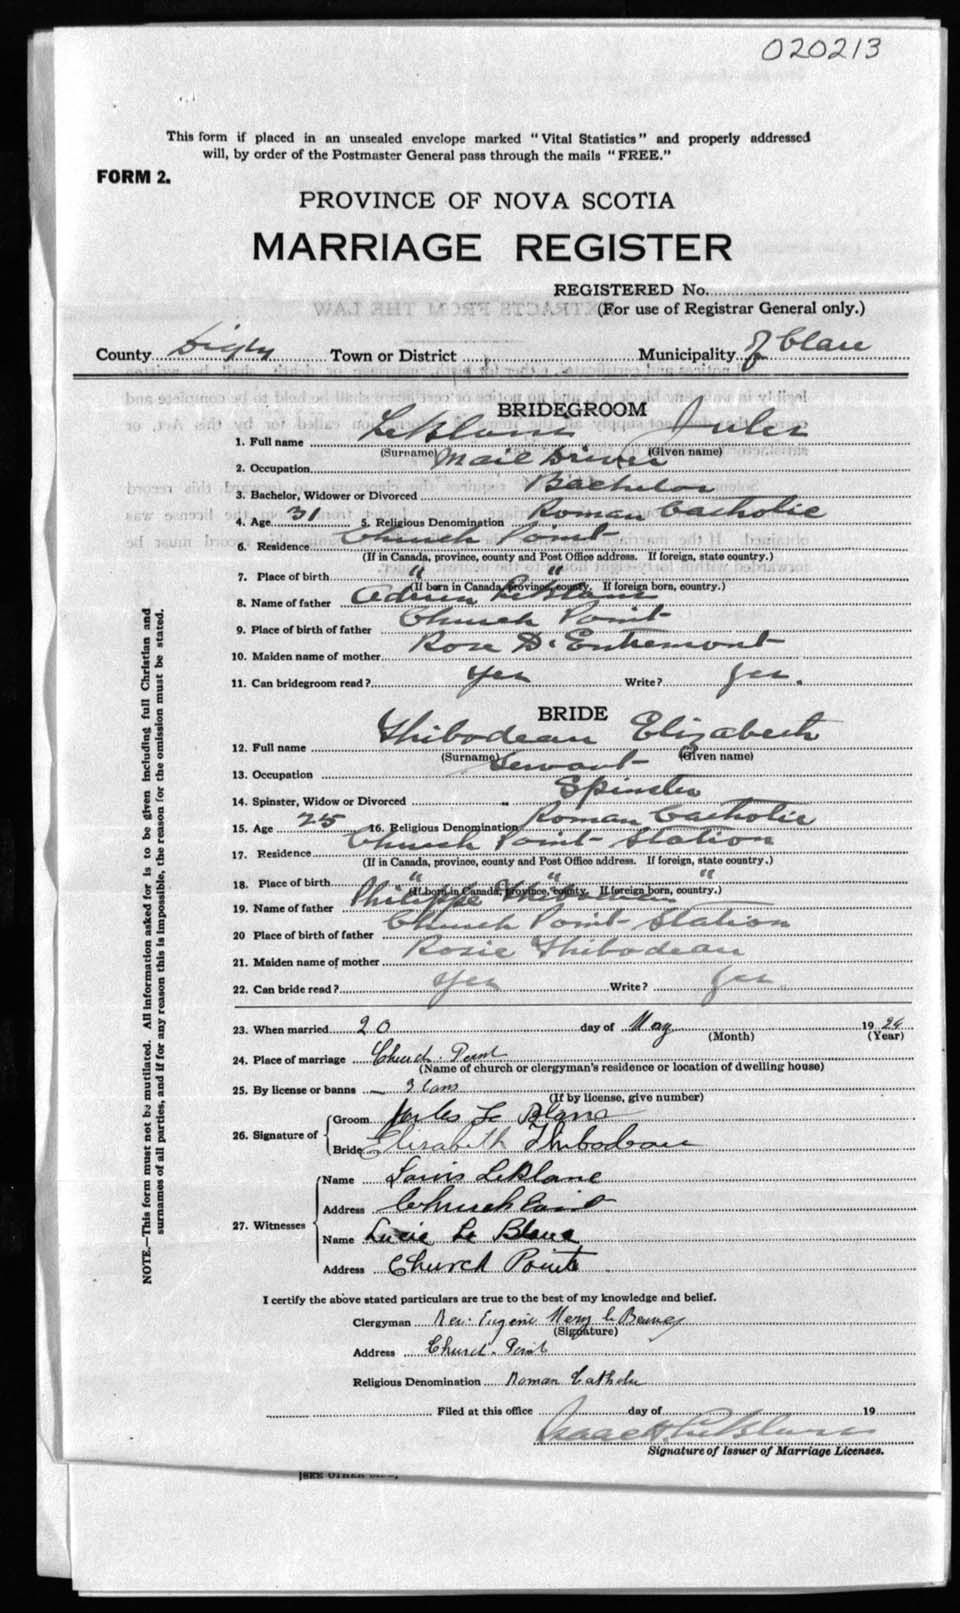 020213
This form if placed in an unsealed envelope marked "Vital Statistics" and properly addressed
will, by order of the Postmaster General pass through the mails "FREE."
FORM 2.
PROVINCE OF NOVA SCOTIA
MARRIAGE REGISTER
REGISTERED No.
(For use of Registrar General only.)
County Digby Town or District Municipality of Clare
BRIDEGROOM
1. Full name LeBlanc Jules
(Surname) (Given name)
2. Occupation Mail Driver
3. Bachelor, Widower or Divorced Bachelor
4. Age 31 5. Religious Denomination Roman Catholic
6. Residence Church Point
(If in Canada, province, county and Post Office address. If foreign, state country.)
7. Place of birth " "
(If born in Canada, province, county. If foreign born, country.)
8. Name of father LeBlanc
9. Place of birth of father Church Point
10. Maiden name of mother Rose D'Entremont
11. Can bridegroom read? Yes Write? Yes.
BRIDE
12. Full name Thibodeau Elizabeth
(Surname) (Given name)
13. Occupation Servant
14. Spinster, Widow or Divorced Spinster
15. Age 25 16. Religious Denomination Roman Catholic
17. Residence Church Point Station
(If in Canada, province, county and Post Office address. If foreign, state country.)
18. Place of birth " " "
(If born in Canada, province, county. If foreign born, country.)
19. Name of father Philippe Thibodeau
20 Place of birth of father Church Point Station
21. Maiden name of mother Rosie Thibodeau
22. Can bride read? Yes Write? Yes
23. When married 20 day of May 19
(Month) (Year)
24. Place of marriage Church Point
(Name of church or clergyman's residence or location of dwelling house)
25. By license or banns 3
(If by license, give number)
26. Signature of Groom Jules Le Blanc
Bride Elizabeth Thibodeau
27. Witnesses
Name Louis LeBlanc
Address Church Point
Name Lucie Le Blanc
Address Church Point
I certify the above stated particulars are true to the best of my knowledge and belief.
Clergyman Rev. Eugene
(Signature)
Address Church Point
Religious Denomination Roman Catholic
Filed at this office day of 19
Isaac LeBlanc
Signature of Issuer of Marriage Licenses.
NOTE.—This form must not be mutilated. All information asked for is to be given including full Christian and
surnames of all parties, and if for any reason this is impossible, the reason for the omission must be stated.